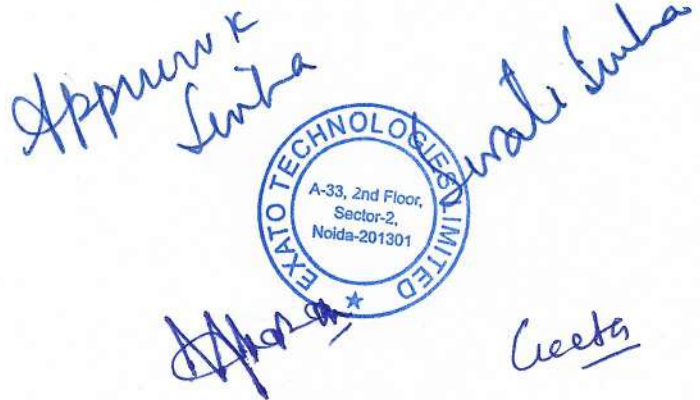 Appuruv K
Sinha
Swati Sinha
EXATO TECHNOLOGIES LIMITED
A-33, 2nd Floor,
Sector-2,
Noida-201301
Geeta